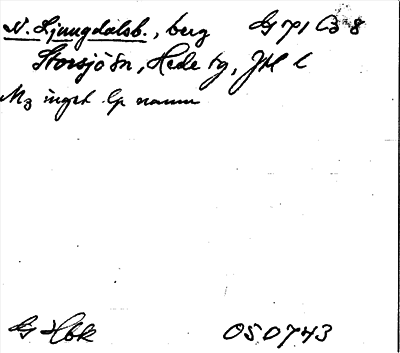 N. Ljungdalsb., berg G 71 C 8
Storsjö sn, Hede tg, JH l
Mz inget. Gp namn
G Hbk 050743